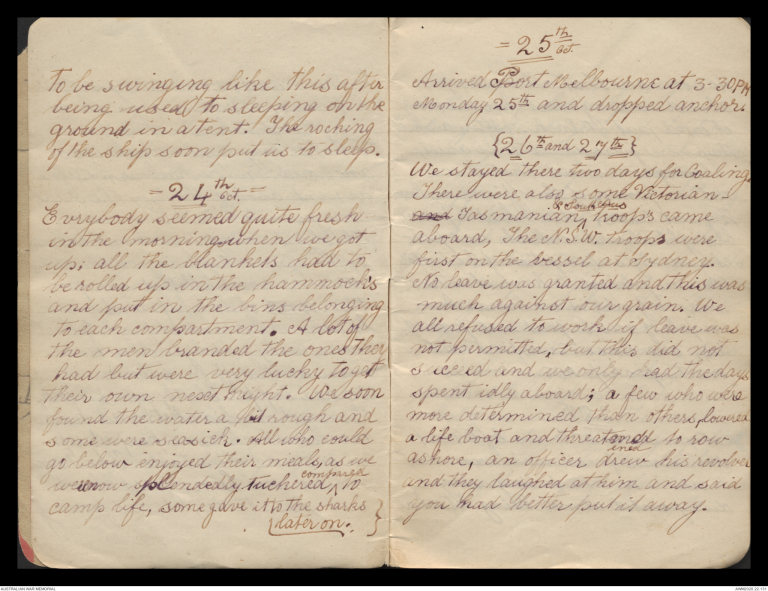 To be swinging like this after
being used to sleeping on the
ground in a tent. The rocking
of the ship soon put us to sleep.
= 24th Oct. =
Evrybody seemed quite fresh
in the morning when we got
up; all the blankets had to
be rolled up in the hammocks
and put in the bins belonging
to each compartment. A lot of
the men branded the ones they
had but were very lucky to get
their own nesct night. We soon
found the water a bit rough and
some were seasick. All who could
go below injoyed their meals, as we
were now splendedly tuchered, compared to
camp life, some gave it to the sharks
{later on.}
= 25th Oct.
Arrived Port Melbourne at 3-30PM
Monday 25th and dropped anchor.
{26th and 27th}
We stayed there two days for Coaling.
There were also some Victorian -
and Tasmanian, & troops came
aboard, The N.S.W. troops were
first on the vessel at Sydney.
No leave was granted and this was
much against our grain. We
all refused to work if leave was
not permitted, but this did not
succeed and we only had the days
spent idly aboard; a few who were
more determined than others, lowered
a life boat and threatened to row
ashore, an officer drew his revolver
and they laughed at him and said
you had better put it away.
AUSTRALIAN WAR MEMORIAL